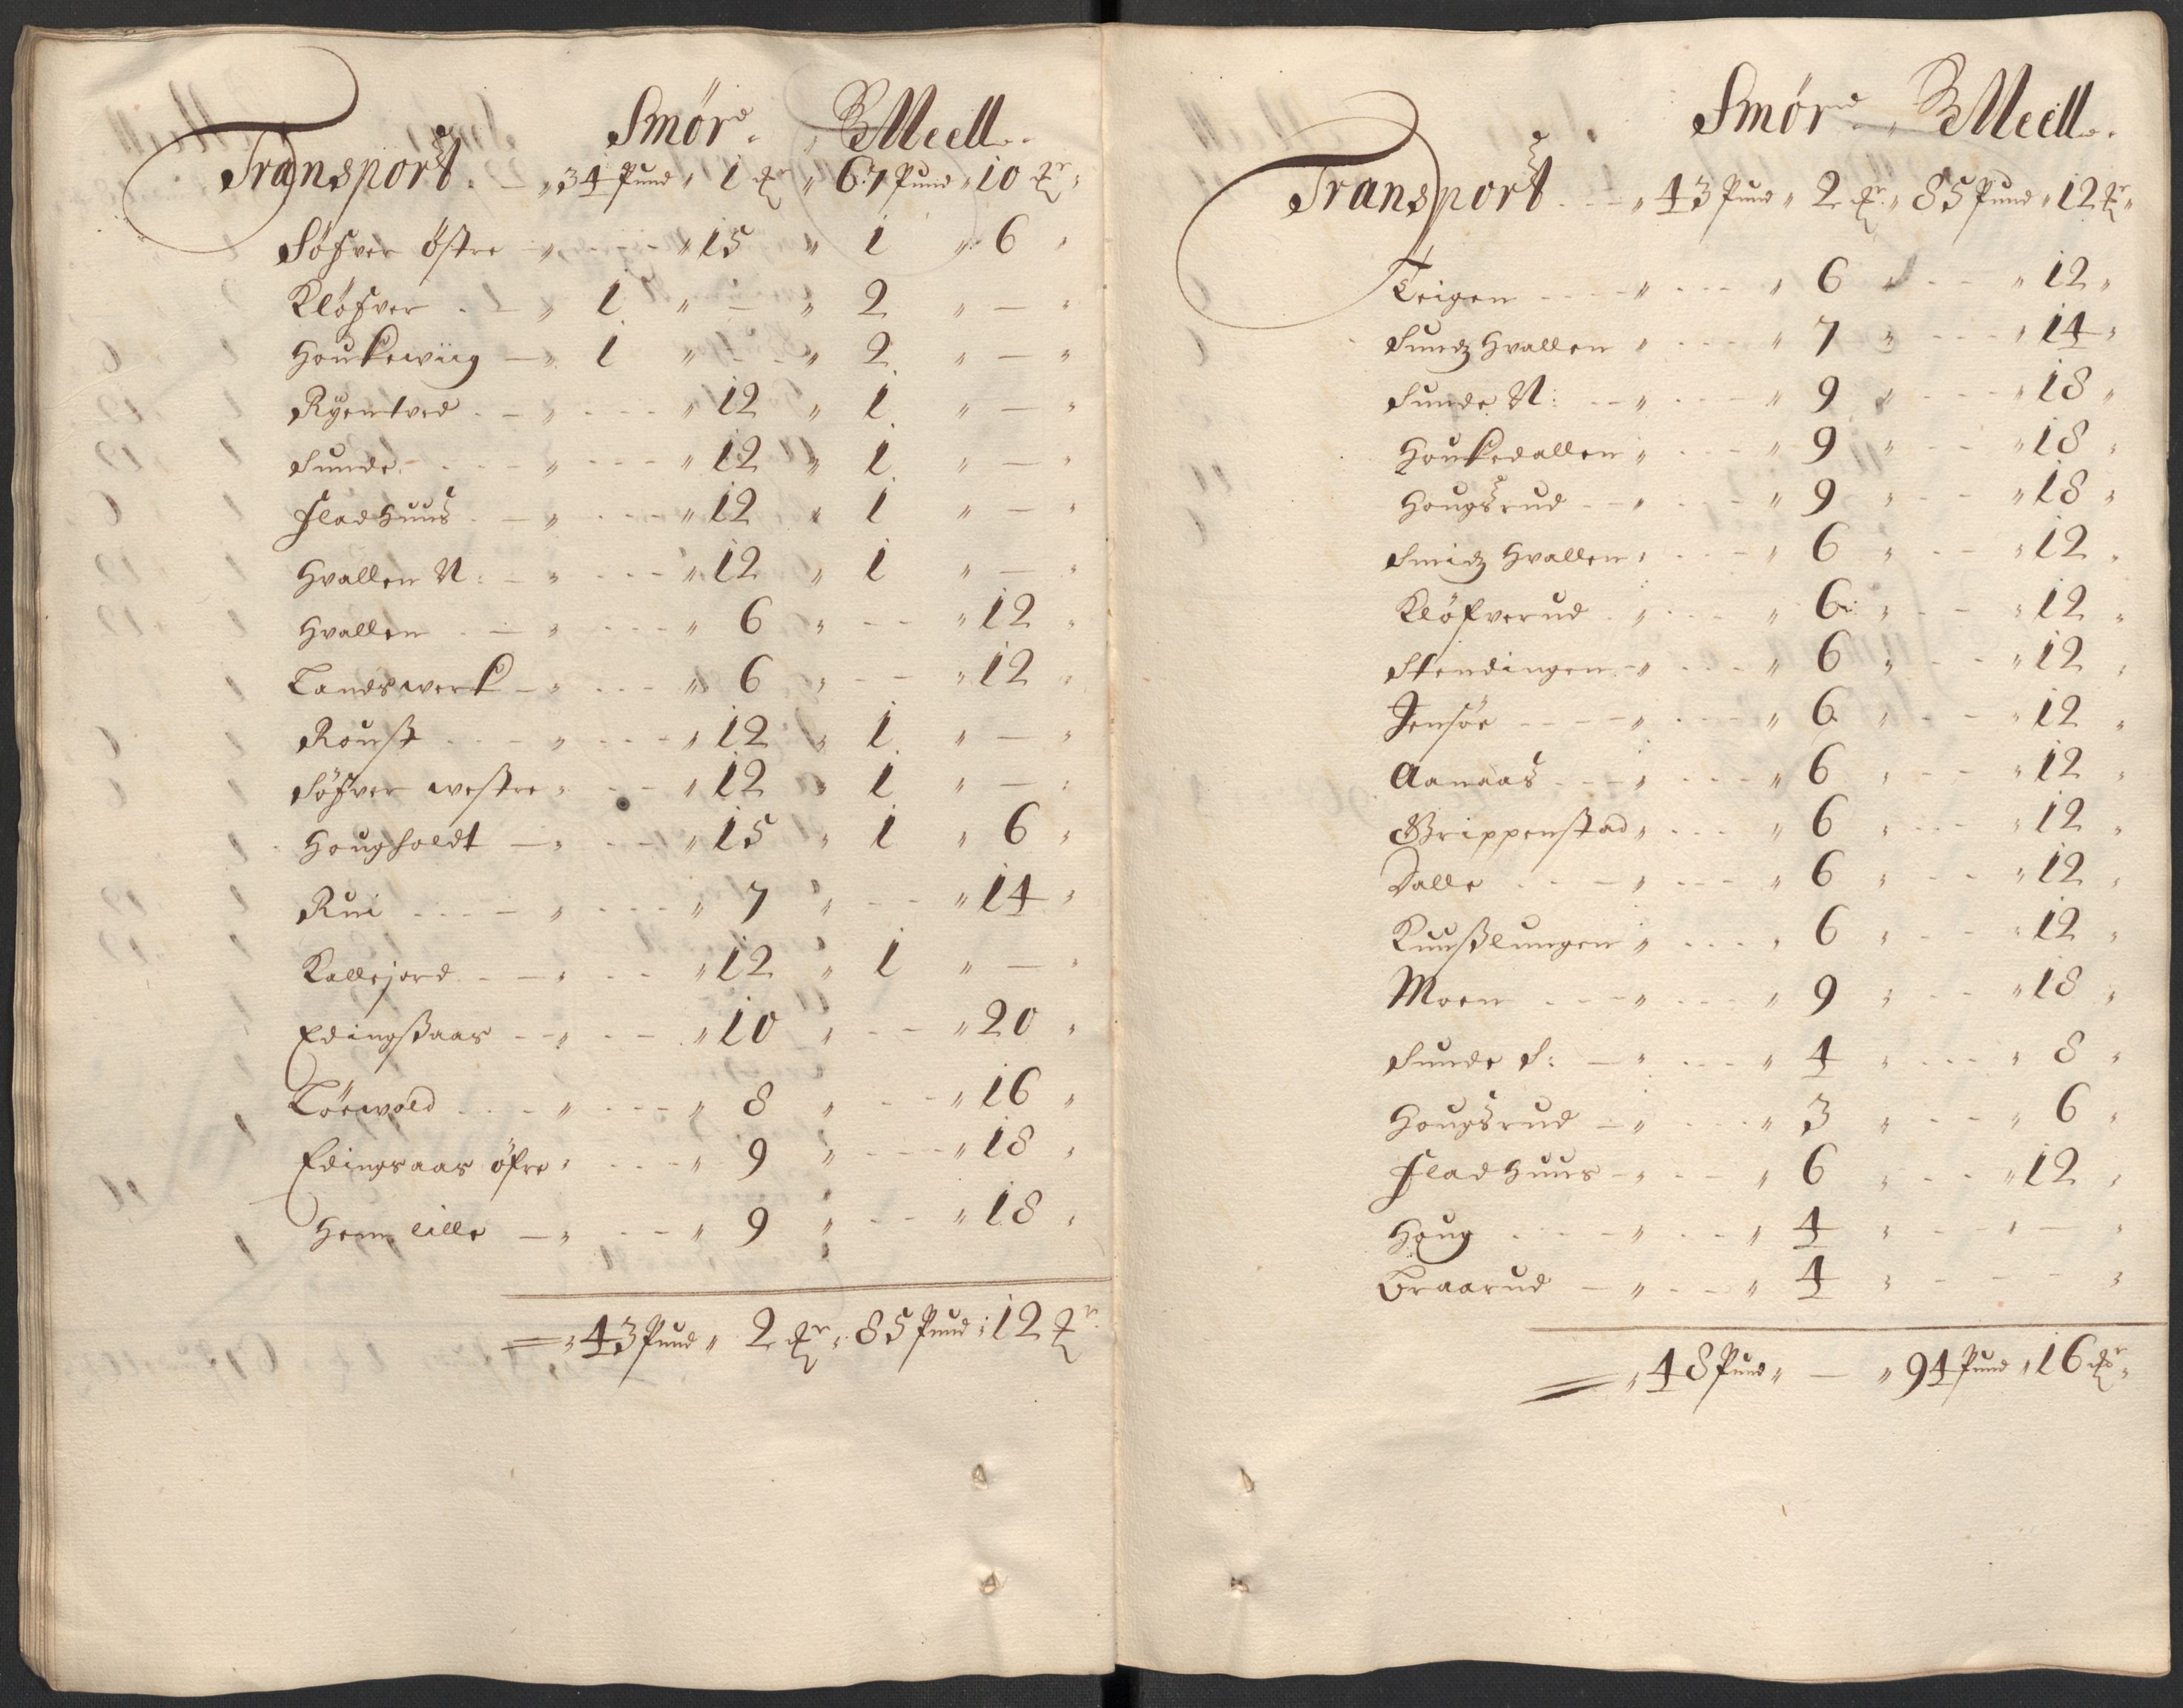 Smör. B Meell.
Transport. 34 Pund 1 " 67 Pund 10
Söfver östre " 15 " 1 " 6 "
Klöfver " 1 " — " 2 " — "
Houkewiig — " 1 " — " 2 " — "
Ryentved " 12 " 1 " — "
Sunde " 12 " 1 " — "
Fladhuus " 12 " 1 " — "
Hvallen N: " 12 " 1 " — "
Hvallen " 6 " 12 "
Landswerk " 6 " 12 "
" 12 " 1 " — "
Söfver westre " 12 " 1 " — "
Hougholdt " 15 " 1 " 6 "
Rui " 7 " 14 "
Kallejord " 12 " 1 " — "
Edingßaas " 10 " 20 "
Löewold " 8 " 16 "
Edingsaas öfre " 9 " 18 "
Hem lille " 9 " 18 "
= 43 Pund " 2 " 85 Pund " 12
Smör. B Meell.
Transport " 43 Pund " 2 " 85 Pund " 12
Teigen " 6 " 12 "
Sundz Hvallen " 7 " 14 "
Sunde N: " 9 " 18 "
Houkedallen " 9 " 18 "
Hougsrud " 9 " 18 "
Smidz Hvallen " 6 " 12 "
Klöfverud " 6 " 12 "
Stendingen " 6 " 12 "
Jensöe " 6 " 12 "
Aanaas " 6 " 12 "
Grippenstad " 6 " 12 "
Dalle " 6 " 12 "
Kuußlungen " 6 " 12 "
Moen " 9 " 18 "
Sunde S: " 4 " 8 "
Hougsrud " 3 " 6 "
Fladhuus " 6 " 12 "
Houg " 4 " — "
Braarud " 4 " — "
= " 48 Pund " — " 94 Pund " 16